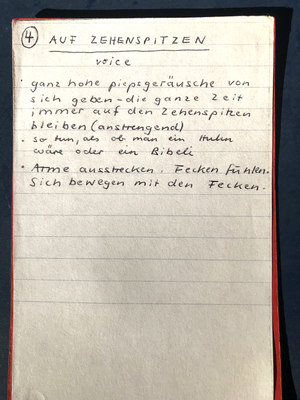 4 AUF ZEHENSPITZEN
voice
· ganz hohe piepsgeräusche von
sich geben - die ganze Zeit
immer auf den Zehenspitzen
bleiben (anstrengend)
· so tun, als ob man ein Huhn
wäre oder ein Bibeli
· Arme ausstrecken. Fecken fühlen.
Sich bewegen mit den Fecken.